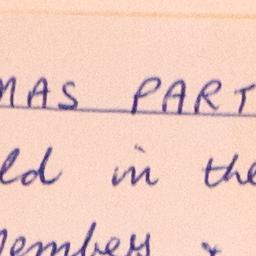 MAS PART
ld in the
Members &